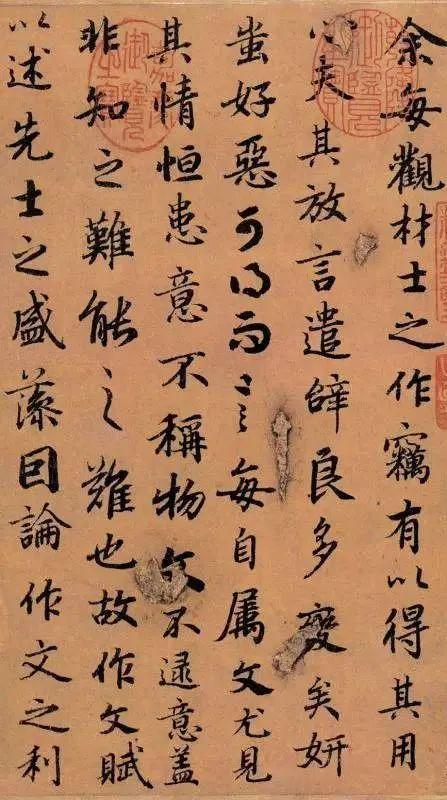 余每觀材士之作竊有以得其用
心夫其放言遣辭良多變矣妍
蚩好惡可得而言每自屬文尤見
其情恒患意不稱物文不逮意盖
非知之難能之難也故作文賦
以述先士之盛藻因論作文之利